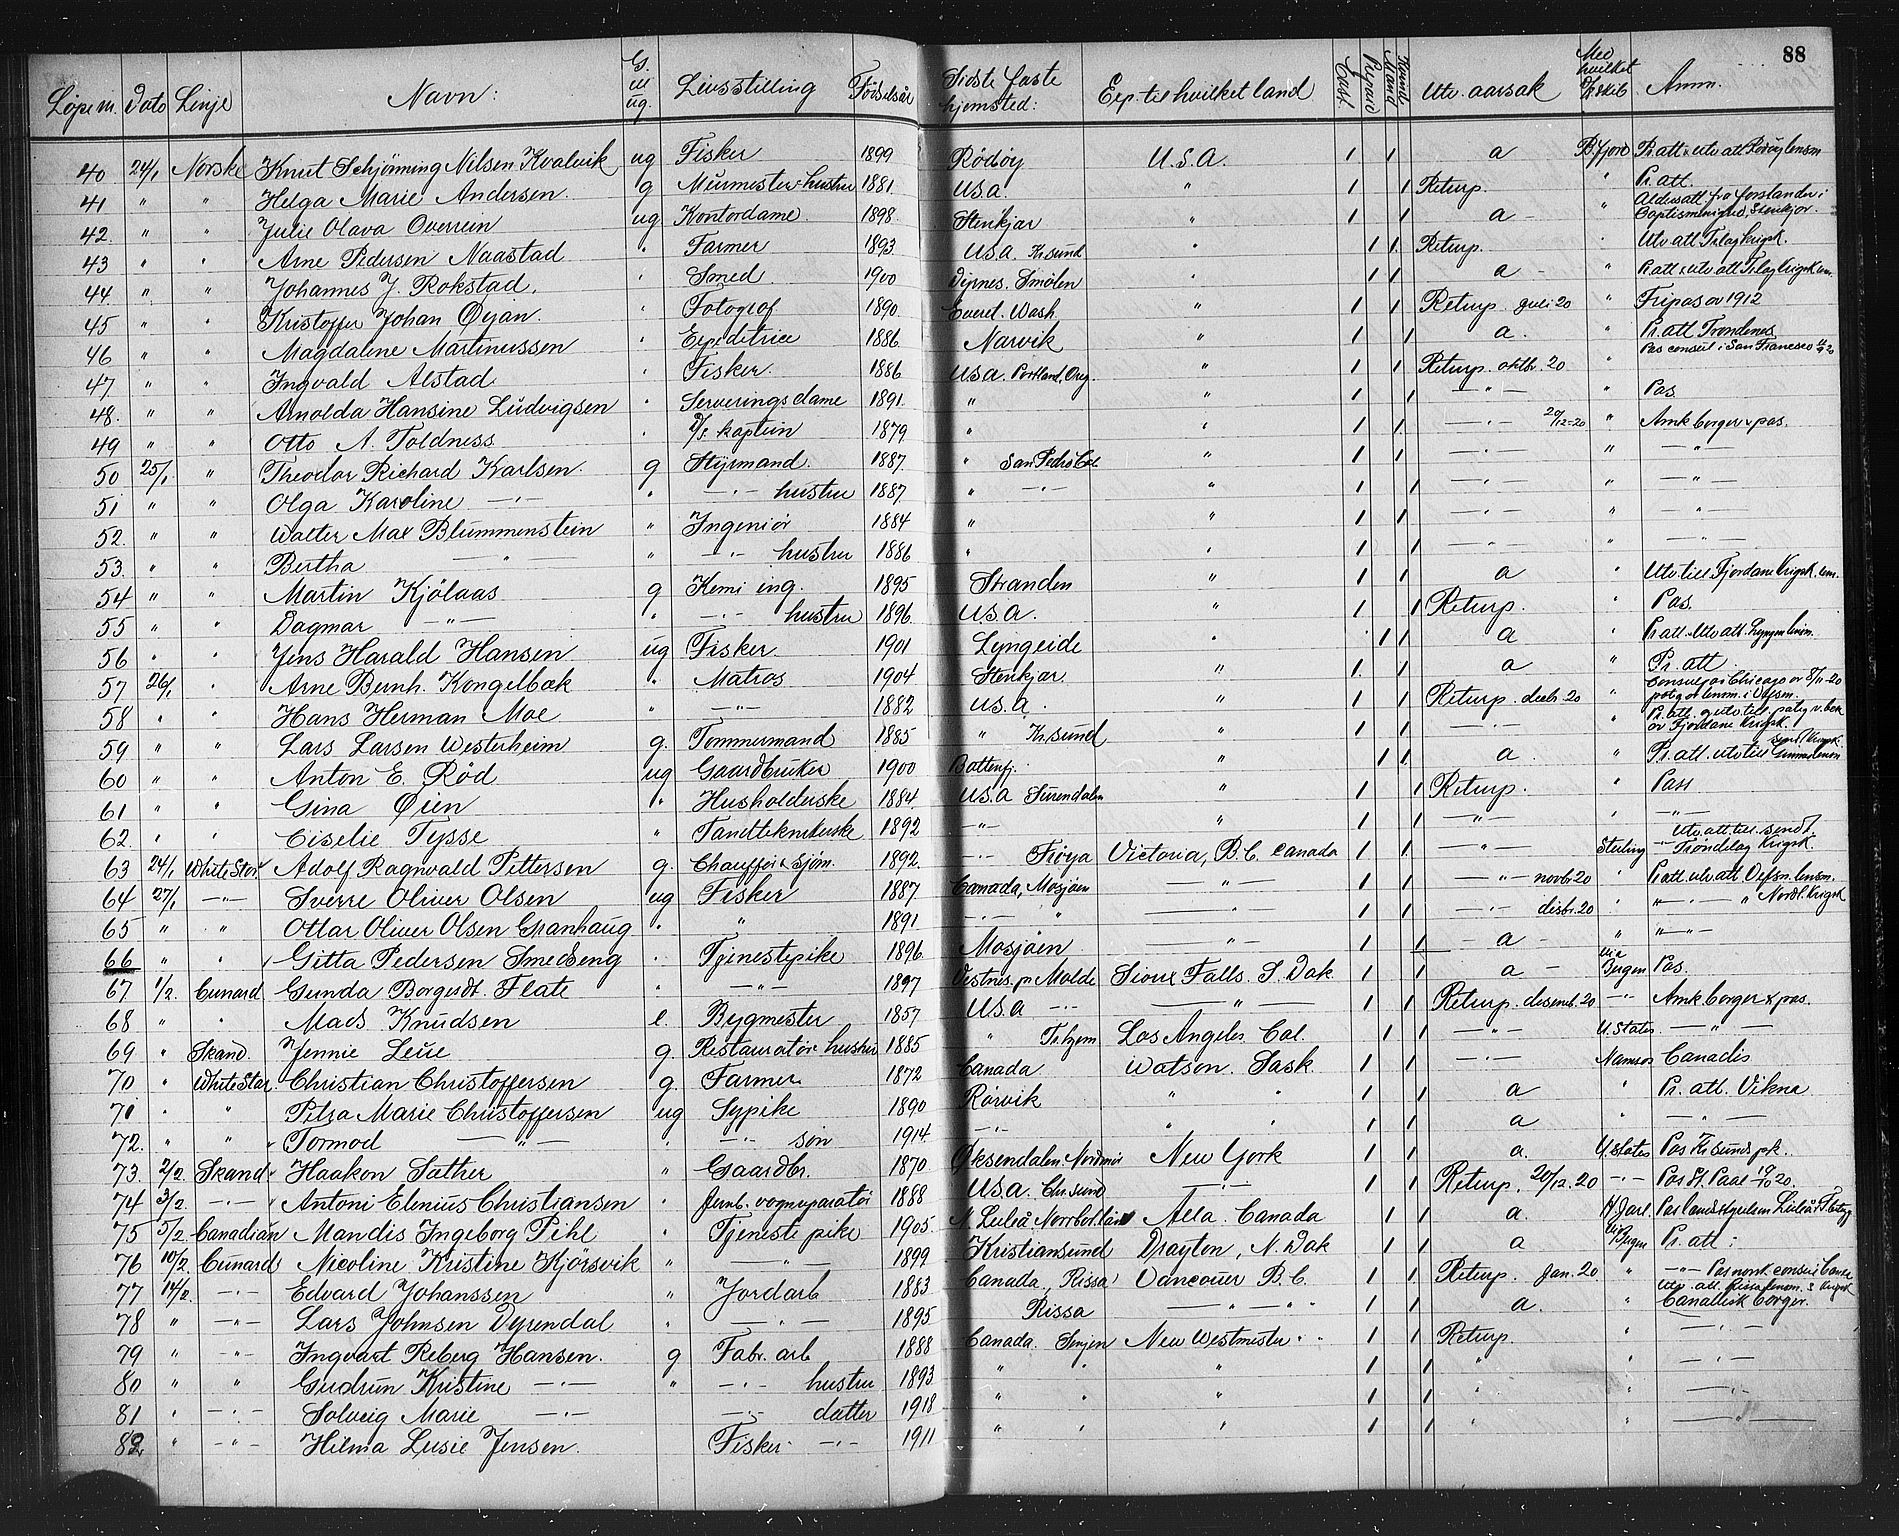 88
Løpe nr. Dato Linje Navn: G. ell ug. Livsstilling Fødselsår Sidste faste hjemsted: Exp. til hvilket land Utv. aarsak Med hvilket Skib. Anm.
40 24/1 Norske Knut Schjönning Nilsen Kvalvik ug Fisker 1899 Rödöy U.S.A. 1 1 a
41 " " Helga Marie Andersen g Murmester hustru 1881 U.S.A. " 1 1 Returp. " Pr. att.
42. " " Julie Olava Overrein ug Kontordame 1898. Stenkjær " 1 1 a
43 " " Arne Pedersen Naastad " Farmer 1893 U.S.A. Kr.sund " 1 1 Returp.
44 " " Johannes J. Rokstad. " Smed 1900 Smölen " 1 1 a
45 " " Kristoffer Johan Öyan. " Fotograf 1890 Everet. Wash. " 1 1 Returp. juli 20 " Fripas av 1912
46 " " Magdalene Martinussen " Expeditrice 1886 Narvik " 1 1 a. " Pr. att Trondenes
47 " " Ingvald Alstad " Fisker 1886 U.S.A. Portland, Oreg. " 1 1 Returp. oktbr. 20 " Pas consul i San Francisco
48. " " Arnolda Hansine Ludvigsen " Serveringsdame 1891 " " 1 1 — " — " Pas
49 " " Otto A. Toldness " D/s. kaptein 1879 " " 1 1 — " — 29/12-20 " Amk borger & pas.
50 25/1 " Theodor Richard Karlsen. g Styrmand. 1887 " San Pedro Cal. " 1 1 — " — " — " —
51 " " Olga Karoline — " — " — " — hustru 1887 " — " — " 1 1 — " — " — " —
52. " " Walter Max Blummenstein " Ingeniör 1884 " " 1 1 — " — " — " —
53. " " Bertha — " — " — " — hustru 1886 " " 1 1 — " — " — " —
54 " " Martin Kjölaas g Kemi ing. 1895 Stranden " 1 1 a
55 " " Dagmar — " — " — " — hustru 1896 U.S.A. " 1 1 Returp. " Pas.
56 " " Jens Harald Hansen ug Fisker 1901 Lyngeide " 1 1 a
57 26/1 " Arne Bernh. Kongelbak " Matros 1904 Stenkjær " 1 1 a " Pr. att.
58 " " Hans Herman Moe " — " — 1882 U.S.A. " 1 1 Returp. decbr 20
59 " " Lars Larsen Westerheim g. Tømmermand 1885 " Kr.sund " 1 1 — " —
60 " " Anton E. Röd ug Gaardbruker 1900 " 1 1 a
61 " " Gina Öien " Husholderske 1884 U.S.A Surendalen " 1 1 Returp. " Pass
62. " " Giselie Tysse " Tandteknikerske 1892 — " — " 1 1 — " — " — " —
63 24/1 White Star. Adolf Ragnvald Pettersen g. Chauffør & sjøm. 1892 — " — Frøya Victoria, B.C. Canada 1 1 — " — Sterling
64 27/1 — " — Sverre Oliver Olsen ug Fisker 1887 Canada, Mosjøen — " — 1 1 — " — novbr 20
65 " " Ottar Oliver Olsen Granhaug " " 1891 — " — " — " — 1 1 — " — desbr. 20
66 " " Gitta Pedersen Smedseng " Tjenestepike 1896 Mosjöen — " — 1 1 a " — " —
67 1/2. Cunard Gunda Borgerdt. Flate " — " — 1897 Vestnes, pr Molde Sioux Falls. S. Dak. 1 1 a via Bergen Pas.
68 " " Mads Knudsen e. Bygmester 1857 U.S.A — " — 1 1 Returp. desemb. 20 — " — Amk borger & pas.
69 " Skand. Jennie Leue g. Restauratör hustru 1885 " Tr.hjem Los Angeles. Cal. 1 1 — " — U. States — " —
70 " White Star. Christian Christoffersen g. Farmer 1872 Canada Watson. Sask. 1 1 — " — Namsos Canadis
71 " " Petra Marie Christoffersen ug Sypike 1890 Rörvik " " 1 1 a " Pr. att. Vikna
72. " " Tormod — " — " — " — sön 1914 — " — " " 1 1 a " — " —
73. 2/2 Skand. Haakon Sather " Gaardbr. 1870 Öksendalen. Nordmör New York 1 1 a. U. States Pas Kr.sunds pk.
74 3/2. — " — Antoni Elenius Christiansen " Jernb. vognreparatör 1888 U.S.A. Chr.sund — " — 1 1 Returp. 20/12. 20 — " — Pas St. Paul
75 5/2. Canadian Mandis Ingeborg Pihl " Tjenestepike 1905 N. Luleå Norrbotten Alta. Canada 1 1 a. H. Jarl.
76 10/2. Cunard Nicoline Kristine Kjörsvik " — " — 1899 Kristiansund Drayton, N. Dak 1 1 a v/ Bergen Pr. att:
77 14/2 — " — Edvard Johanssen " Jordarb 1883 Canada, Rissa Vancouver B.C. 1 1 Returp. Jan. 20
78 " — " — Lars Johnsen Dyrendal " — " — 1895 Rissa — " — " " 1 1 a. " Canadisk borger.
79 " — " — Ingvart Reberg Hansen. g Fabr. arb 1888 Canada. Senjen New Westmister " " 1 1 Returp. " — " —
80 " " Gudrun Kristine — " — " — " — hustru 1893 " " " 1 1 " " — " —
81 " — " — Solveig Marie — " — — " — datter 1918 " " " 1 1 " " — " —
82 " — " — Hilma Lusie Jensen. Fisker — " — 1911 " " " 1 1 " " — " —